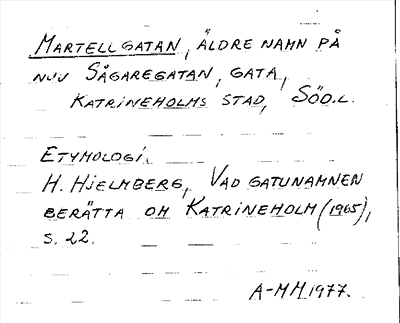 MARTELLGATAN, ÄLDRE NAMN PÅ
NUV SÅGAREGATAN, GATA,
KATRINEHOLMS STAD, SÖD.L.
ETYMOLOGI.
H. HJELMBERG, VAD GATUNAMNEN
BERÄTTA OM KATRINEHOLM (1965),
S. 22.
A-MM 1977.